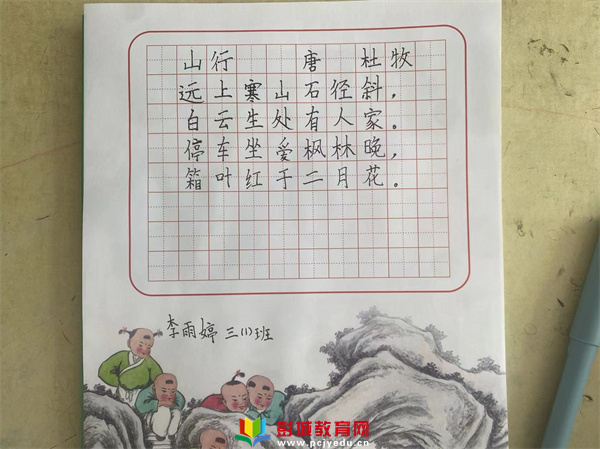 山行 唐 杜牧
远上寒山石径斜，
白云生处有人家。
停车坐爱枫林晚，
箱叶红于二月花。
李雨婷 三(1)班
彭城教育网
www.pcjyedu.cn